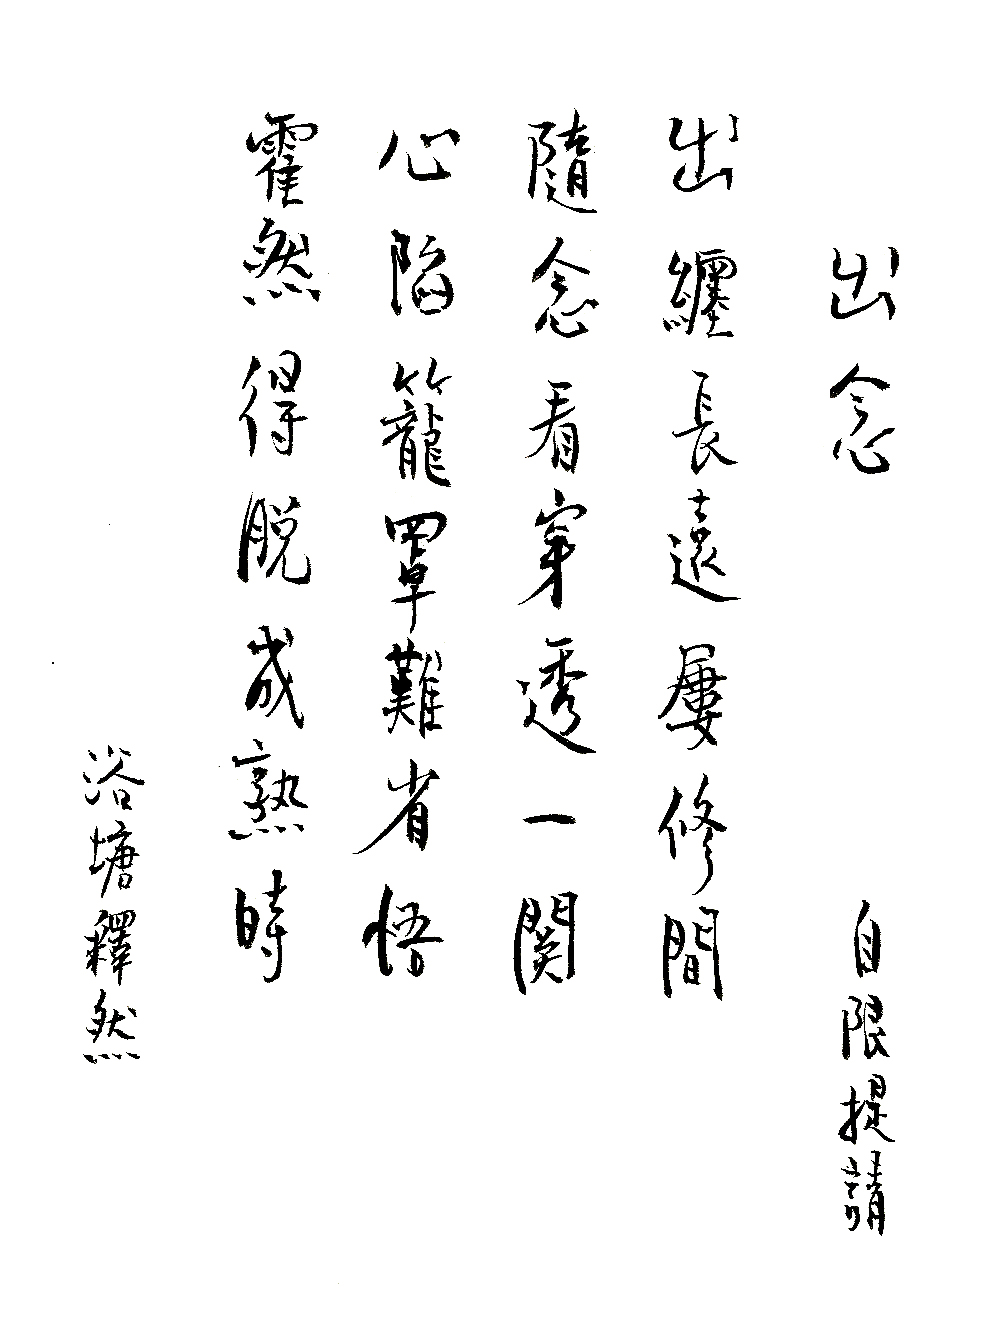 出念　自限提請
出纏長遠屢修間
隨念看穿透一関
心陷籠罩難省悟
霍然得脫成熟時
浴塘釋然